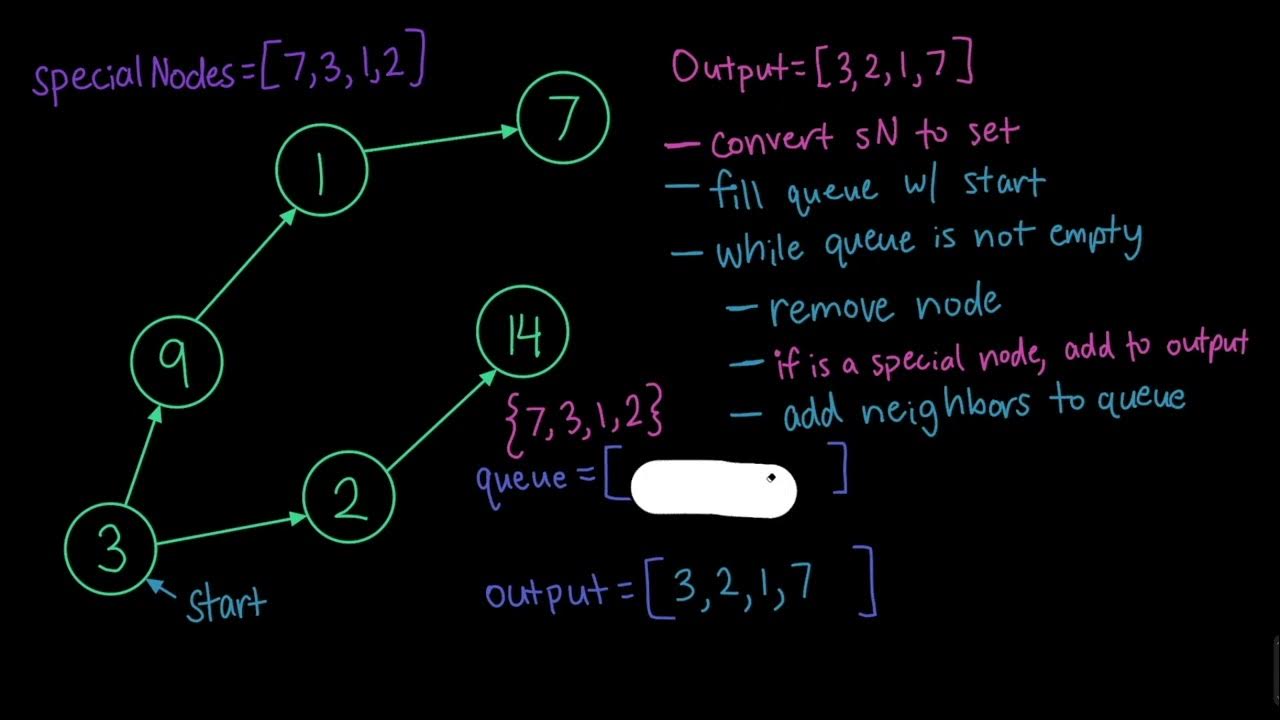 specialNodes=[7,3,1,2]
7
1
14
9
2
3
Start
Output=[3,2,1,7]
— convert sN to set
— fill queue w/ start
— while queue is not empty
— remove node
— if is a special node, add to output
— add neighbors to queue
{7,3,1,2}
queue=[ ]
output=[3,2,1,7 ]